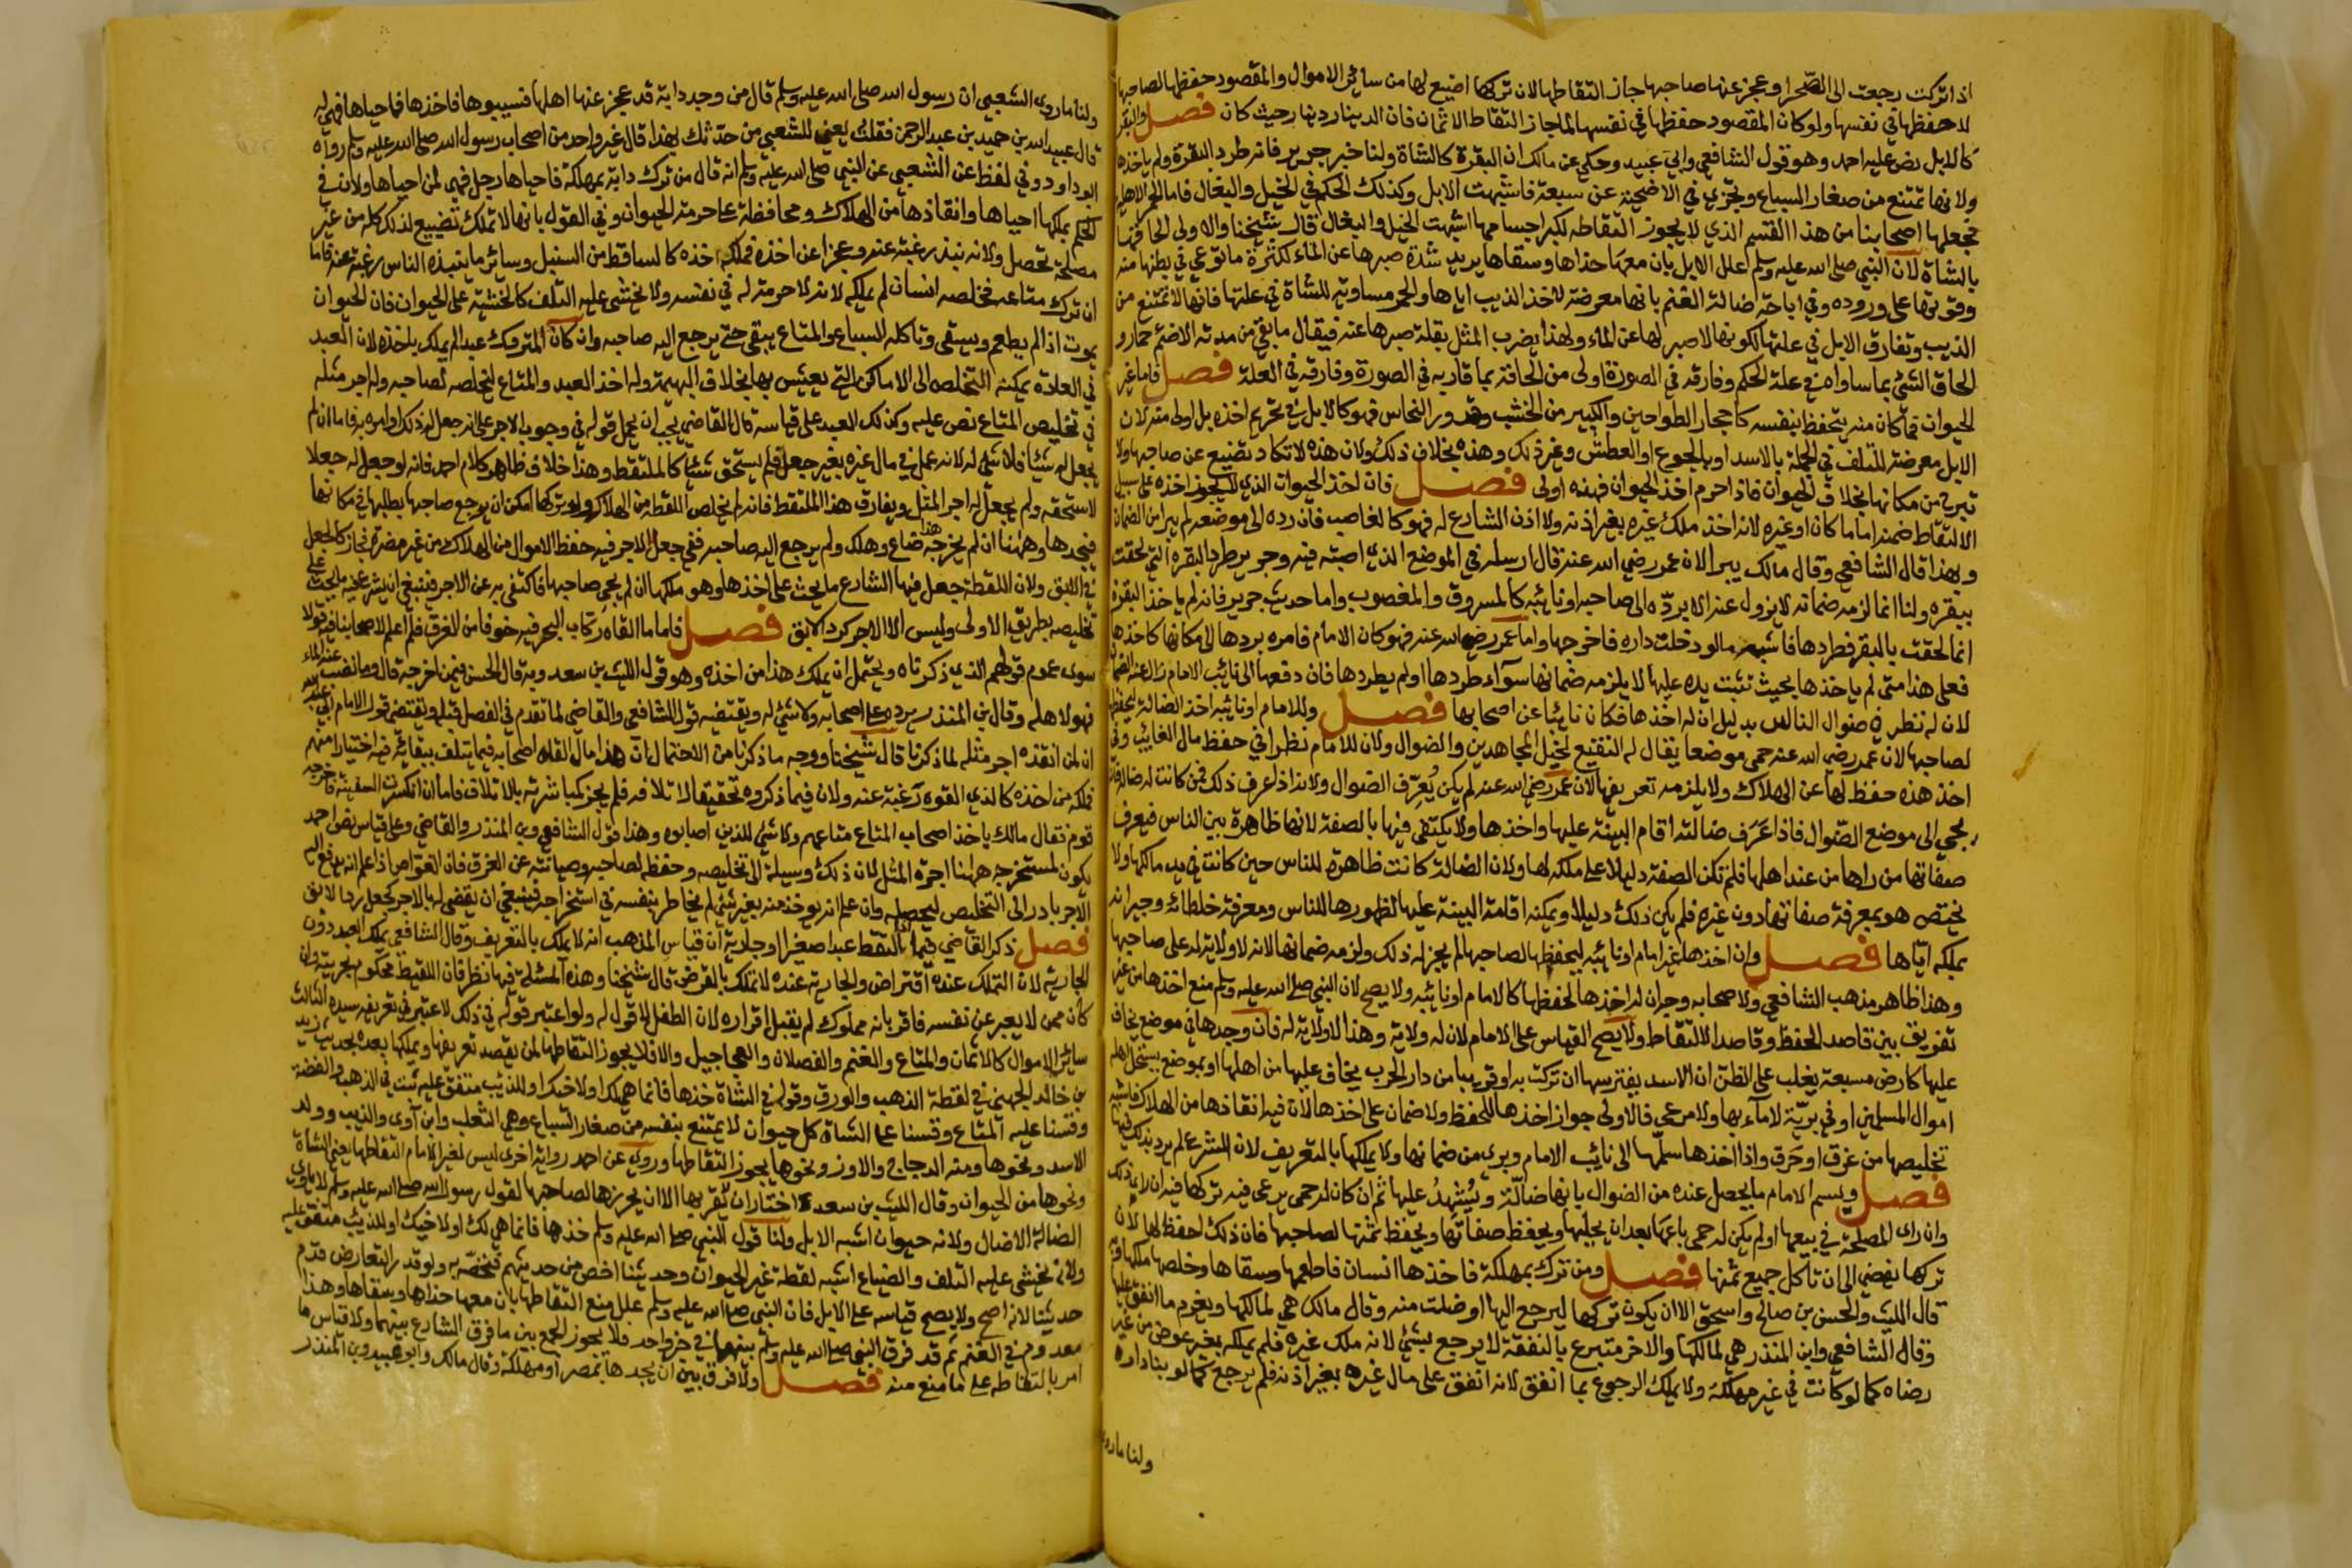 اذا تركت رجعت الى الصحرا وعجز عنها صاحبها جاز التقاطها لان تركها اضيع لها من سائر الاموال والمقصود حفظها لصاحبها
لا حفظها في نفسها ولو كان المقصود حفظها في نفسها لما جاز التقاط الاثمان فان الدينار دينار حيث كان فصل والبقر
كالابل نص عليه احمد وهو قول الشافعي وابي عبيد وحكي عن مالك ان البقرة كالشاة ولنا خبر جرير فانه طرد البقرة ولم ياخذها
ولانها تمتنع من صغار السباع وتجزي في الاضحية عن سبعة فاشبهت الابل وكذلك الحكم في الخيل والبغال فاما الحمر الاهلية
فجعلها اصحابنا من هذا القسم الذي لا يجوز التقاطه لكبر اجسامها اشبهت الخيل والبغال قال شيخنا والاولى الحاقها
بالشاة لان النبي صلى الله عليه وسلم علل الابل بان معها حذاها وسقاها يريد شدة صبرها عن الماء لكثرة ما توعي في بطنها منه
وقوتها على وروده وفي اباحة ضالة الغنم بانها معرضة لاخذ الذيب اياها والحمر مساوية للشاة في علتها فانها لا تمتنع من
الذيب وتفارق الابل في علتها لكونها لا صبر لها عن الماء ولهذا يضرب المثل بقلة صبرها عنه فيقال ما بقي من مدته الا ضمئ حمار و
الحاق الشي بما ساواه في علة الحكم وفارقه في الصورة اولى من الحاقه بما قاربه في الصورة وفارقه في العلة فصل فاما غير
الحيوان فما كان منه يتحفظ بنفسه كاحجار الطواحين والكبير من الخشب وقدور النحاس فهو كالابل في تحريم اخذه بل اولى منه لان
الابل معرضة للتلف في الجملة بالاسد او بالجوع او العطش وغير ذلك وهذه بخلاف ذلك ولان هذه لا تكاد تضيع عن صاحبها ولا
تبرح من مكانها بخلاف الحيوان فاذا حرم اخذ الحيوان فهذه اولى فصل فان اخذ الحيوان الذي لا يجوز اخذه على سبيل
الالتقاط ضمنه اماما كان او غيره لانه اخذ ملك غيره بغير اذنه ولا اذن الشارع له فهو كالغاصب فان رده الى موضعه لم يبرا من الضمان
وبهذا قال الشافعي وقال مالك يبرا لان عمر رضي الله عنه قال ارسله في الموضع الذي اصبته فيه وجرير طرد البقرة التي لحقت
ببقره ولنا انما لزمه ضمانه لا يزول عنه الا برده الى صاحبه او نائبه كالمسروق والمغصوب واما حديث جرير فانه لم ياخذ البقرة
انما لحقت بالبقر فطردها فاشبه مالو دخلت داره فاخرجها واما عمر رضي الله عنه فهو كان الامام فامره بردها الى مكانها كاخذها
فعلى هذا متى لم ياخذها بحيث تثبت يده عليها لا يلزمه ضمانها سواء طردها او لم يطردها فان دفعها الى نائب الامام زال عنه الضمان
لان له نظر في ضوال الناس بدليل ان له اخذها فكان نائبا عن اصحابها فصل وللامام او نائبه اخذ الضالة ليحفظها
لصاحبها لان عمر رضي الله عنه حمى موضعا يقال له النقيع لخيل المجاهدين والضوال ولان للامام نظرا في حفظ مال الغايب وفي
اخذ هذه حفظ لها عن الهلاك ولا يلزمه تعريفها لان عمر رضي الله عنه لم يكن يعرف الضوال ولانه اذا عرف ذلك فمن كانت له ضالة فانه
يجي الى موضع الضوال فاذا عرف ضالته اقام البينة عليها واخذها ولا يكتفي فيها بالصفة لانها ظاهرة بين الناس فيعرف
صفاتها من راها من عند اهلها فلم تكن الصفة دليلا على ملكه لها ولان الضالة كانت ظاهرة للناس حين كانت في يد مالكها ولا
يختص هو بمعرفة صفاتها دون غيره فلم يكن ذلك دليلا ويمكنه اقامة البينة عليها لظهورها للناس ومعرفة خلطائه وجيرانه
بملكه اياها فصل وان اخذها غير امام او نائبه ليحفظها لصاحبها لم يجز له ذلك ولزمه ضمانها لانه لا ولاية له على صاحبها
وهذا ظاهر مذهب الشافعي ولاصحابه وجه ان له اخذها لحفظها كالامام او نائبه ولا يصح لان النبي صلى الله عليه وسلم منع اخذها من غير
تفريق بين قاصد الحفظ وقاصد الالتقاط ولا يصح القياس على الامام لان له ولاية وهذا لا ولاية له فان وجدها في موضع يخاف
عليها كارض مسبعة يغلب على الظن ان الاسد يفترسها ان تركت به او قريبا من دار الحرب يخاف عليها من اهلها او بموضع يستحل اهله
اموال المسلمين او في برية لا ماء بها ولا مرعى فالاولى جواز اخذها للحفظ ولا ضمان على اخذها لان فيه انقاذها من الهلاك فاشبه
تخليصها من غرق او حرق واذا اخذها سلمها الى نائب الامام وبرئ من ضمانها ولا يملكها بالتعريف لان الشرع لم يرد بذلك فيها
فصل ويسم الامام ما يحصل عنده من الضوال بانها ضالة ويشهد عليها ثم ان كان له حمى يرعى فيه تركها فيه ان راى ذلك
وان راى المصلحة في بيعها او لم يكن له حمى باعها بعد ان يحليها ويحفظ صفاتها ويحفظ ثمنها لصاحبها فان ذلك احفظ لها لان
تركها يفضي الى ان تاكل جميع ثمنها فصل ومن ترك بمهلكة فاخذها انسان فاطعمها وسقاها وخلصها ملكها وبه
قال الليث والحسن بن صالح واسحق الا ان يكون تركها ليرجع اليها او ضلت منه وقال مالك هي لمالكها ويغرم ما انفق عليها
وقال الشافعي وابن المنذر هي لمالكها والاخر متبرع بالنفقة لا يرجع بشي لانه ملك غيره فلم يملكه بغير عوض من غير
رضاه كما لو كانت في غير مهلكة ولا يملك الرجوع بما انفق لانه انفق على مال غيره بغير اذنه فلم يرجع كما لو بنا داره
ولنا ما روى
ولنا ما روى الشعبي ان رسول الله صلى الله عليه وسلم قال من وجد دابة قد عجز عنها اهلها فسيبوها فاخذها فاحياها فهي له
قال عبيد الله بن حميد بن عبد الرحمن فقلت يعني للشعبي من حدثك بهذا قال غير واحد من اصحاب رسول الله صلى الله عليه وسلم رواه
ابو داود وفي لفظ عن الشعبي عن النبي صلى الله عليه وسلم انه قال من ترك دابة بمهلكة فاحياها رجل فهي لمن احياها ولان في
الحكم بملكها احياها وانقاذها من الهلاك ومحافظة على حرمة الحيوان وفي القول بانها لا تملك تضييع لذلك كله من غير
مصلحة تحصل ولانه نبذ رغبة عنه وعجزا عن اخذه فملكه اخذه كالساقط من السنبل وسائر ما ينبذه الناس رغبة عنه فاما
ان ترك متاعه فخلصه انسان لم يملكه لانه لا حرمة له في نفسه ولا يخشى عليه التلف كالخشية على الحيوان فان الحيوان
يموت اذا لم يطعم ويسقى وتاكله السباع والمتاع يبقى حتى يرجع اليه صاحبه وان كان المتروك عبدا لم يملك باخذه لان العبد
في العادة يمكنه التخلص الى الاماكن التي يعيش بها بخلاف البهيمة وله اخذ العبد والمتاع ليخلصه لصاحبه وله اجر مثله
في تخليص المتاع نص عليه وكذلك العبد على قياسه قال القاضي يجب ان يحمل قوله في وجوب الاجر على انه جعل له ذلك او امره به فاما ان لم
يجعل له شيئا فلا شي له لانه عمل في مال غيره بغير جعل فلم يستحق شيئا كالملتقط وهذا خلاف ظاهر كلام احمد فانه لو جعل له جعلا
لاستحقه ولم يجعل له اجر المثل ويفارق هذا الملتقط فانه لم يخلص اللقطة من الهلاك ولو تركها امكن ان يرجع صاحبها يطلبها في مكانها
فيجدها وههنا ان لم يخرجه هذا ضاع وهلك ولم يرجع اليه صاحبه ففي جعل الاجر فيه حفظ الاموال من الهلاك من غير مضرة فجاز كالجعل
في الابق ولان اللقطة جعل فيها الشارع ما يحث على اخذها وهو ملكها ان لم يجي صاحبها فاكتفي به عن الاجر فينبغي ان يشرع في ما يحث على
تخليصه بطريق الاولى وليس الا الاجر كرد الابق فصل فاما ما القاه ركاب البحر فيه خوفا من الغرق فلم اعلم لاصحابنا فيه قولا
سوى عموم قولهم الذي ذكرناه ويحتمل ان يملك هذا من اخذه وهو قول الليث بن سعد وبه قال الحسن فيمن اخرجه قال وما نضب عنه الماء
فهو لاهله وقال بن المنذر يرده على اصحابه ولا شي له ويقتضيه قول الشافعي والقاضي لما تقدم في الفصل قبله ويقتضي قول الامام ابي عبد الله
ان لمن انقذه اجر مثله لما ذكرنا قال شيخنا ووجه ما ذكرنا من الاحتمال ان هذا مال القاه اصحابه فيما يتلف ببقائه فيه اختيارا منهم
فملكه من اخذه كالذي القوه رغبة عنه ولان فيما ذكروه تحقيقا لاتلافه فلم يجز كمباشرته بالاتلاف فاما ان انكسرت السفينة فاخرجه
قوم فقال مالك ياخذ اصحاب المتاع متاعهم ولا شي للذين اصابوه وهذا قول الشافعي وبن المنذر والقاضي وعلى قياس نص احمد
يكون لمستخرجه ههنا اجرة المثل لان ذلك وسيلة الى تخليصه وحفظه لصاحبه وصيانته عن الغرق فان الغواص اذا علم انه يدفع اليه
الاجر بادر الى التخليص ليخلصه وان علم انه يوخذ منه بغير شي لم يخاطر بنفسه في استخراجه فينبغي ان يقضى له بالاجر كجعل رد الابق
فصل ذكر القاضي فيما اذا التقط عبدا صغيرا او جارية ان قياس المذهب انه لا يملك بالتعريف وقال الشافعي يملك العبد دون
الجارية لان التملك عنده اقتراض والجارية عنده لا تملك بالقرض قال شيخنا وهذه المسئلة فيها نظر فان اللقيط محكوم بحريته وان
كان ممن لا يعبر عن نفسه فاقر بانه مملوك لم يقبل اقراره لان الطفل لا قول له ولو اعتبر قوله في ذلك لاعتبر في تعريفه سيده الثالث
سائر الاموال كالاثمان والمتاع والغنم والفصلان والعجاجيل والافلا يجوز التقاطها لمن يقصد تعريفها ويملكها بعده لحديث زيد
بن خالد الجهني في لقطة الذهب والورق وقوله في الشاة خذها فانما هي لك او لاخيك او للذيب متفق عليه ثبت في الذهب والفضة
وقسنا عليه المتاع وقسنا على الشاة كل حيوان لا يمتنع بنفسه من صغار السباع وهي الثعلب وابن آوى والذيب وولد
الاسد ونحوها ومنه الدجاج والاوز ونحوها يجوز التقاطها وروي عن احمد رواية اخرى ليس لغير الامام التقاطها يعني الشاة
ونحوها من الحيوان وقال الليث بن سعد لا اختار ان يقربها الا ان يحرزها لصاحبها لقول رسول الله صلى الله عليه وسلم لا ياوي
الضالة الا ضال ولانه حيوان اشبه الابل ولنا قول النبي صلى الله عليه وسلم خذها فانما هي لك او لاخيك او للذيب متفق عليه
ولانه يخشى عليه التلف والضياع اشبه لقطة غير الحيوان وحديثنا اخص من حديثهم فنخصه به ولو قدر التعارض قدم
حديثنا لانه اصح ولا يصح قياسه على الابل فان النبي صلى الله عليه وسلم علل منع التقاطها بان معها حذاها وسقاها وهذا
معدوم في الغنم ثم قد فرق النبي صلى الله عليه وسلم بينهما في خبر واحد فلا يجوز الجمع بين ما فرق الشارع بينهما ولا قياس ما
امر بالتقاطه على ما منع منه فصل ولا فرق بين ان يجدها بمصر او مهلكة وقال مالك وابو عبيد وبن المنذر